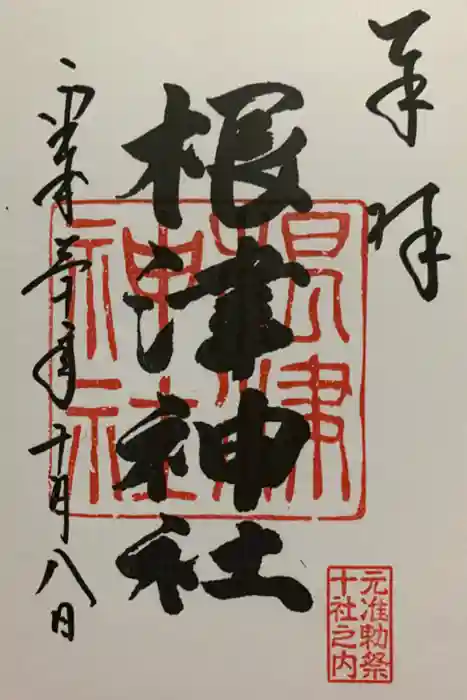 奉拝
根津神社
平成三十年十月八日
根津
神社
元准勅祭
十社之内